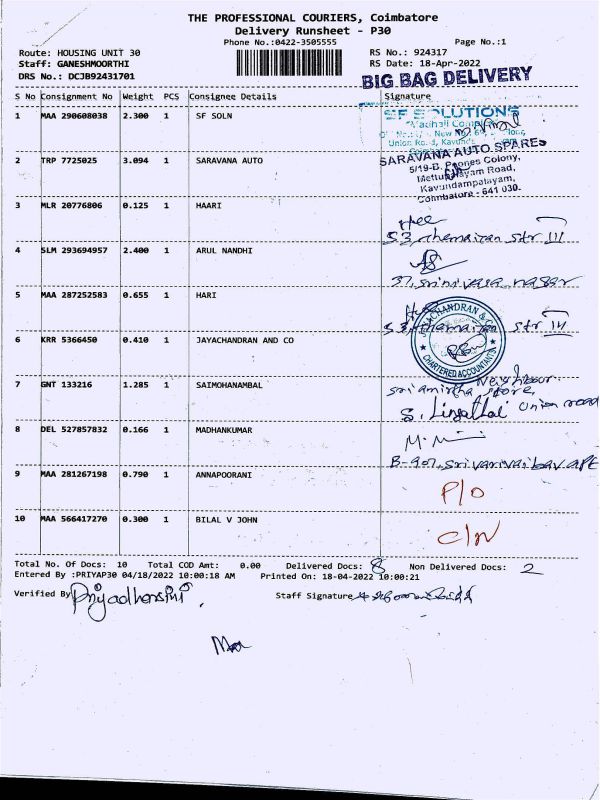 THE PROFESSIONAL COURIERS, Coimbatore
Delivery Runsheet - P30
Phone No.:0422-3505555 Page No.:1
Route: HOUSING UNIT 30 RS No.: 924317
Staff: GANESHMOORTHI RS Date: 18-Apr-2022
DRS No.: DCJB92431701
BIG BAG DELIVERY
S No Consignment No Weight PCS Consignee Details Signature
1 MAA 290608038 2.300 1 SF SOLN
SF SOLUTIONS
2 TRP 7725025 3.094 1 SARAVANA AUTO
SARAVANA AUTO SPARES
5/19-B, Colony,
Mettupalayam Road,
Kavundampalayam,
Coimbatore - 641 030.
3 MLR 20776806 0.125 1 HAARI
53, str III
4 SLM 293694957 2.400 1 ARUL NANDHI
37, srinivasa nagar
5 MAA 287252583 0.655 1 HARI
53, str III
6 KRR 5366450 0.410 1 JAYACHANDRAN AND CO
JAYACHANDRAN & CO
CHARTERED ACCOUNTANTS
7 GNT 133216 1.285 1 SAIMOHANAMBAL
Neighbour
sri amirtha store,
S. Lingathal union road
8 DEL 527857832 0.166 1 MADHANKUMAR
B-907, 
9 MAA 281267198 0.790 1 ANNAPOORANI
P/O
10 MAA 566417270 0.300 1 BILAL V JOHN
C/N
Total No. Of Docs: 10 Total COD Amt: 0.00 Delivered Docs: 8 Non Delivered Docs: 2
Entered By :PRIYAP30 04/18/2022 10:00:18 AM Printed On: 18-04-2022 10:00:21
Verified By Priyadharsini Staff Signature